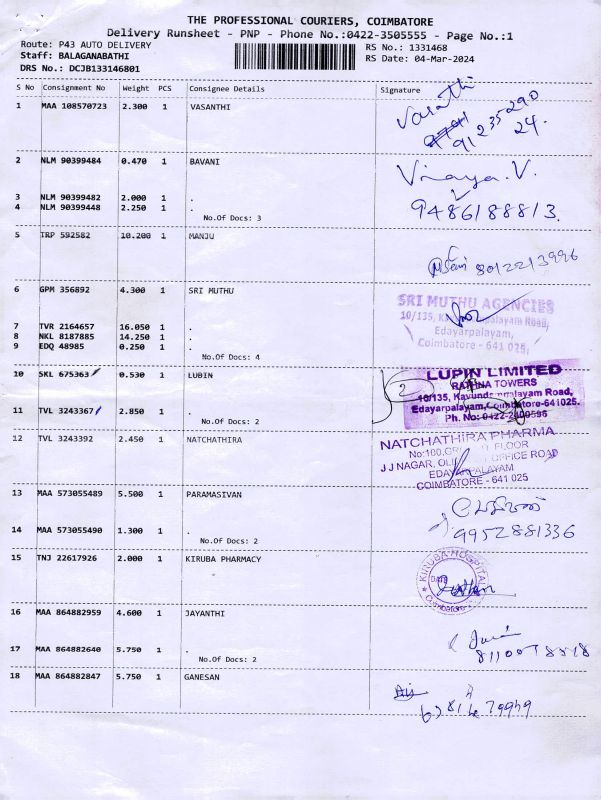 THE PROFESSIONAL COURIERS, COIMBATORE
Delivery Runsheet - PNP - Phone No.:0422-3505555 - Page No.:1
Route: P43 AUTO DELIVERY
RS No.: 1331468
Staff: BALAGANABATHI
RS Date: 04-Mar-2024
DRS No.: DCJB133146801
S No Consignment No Weight PCS Consignee Details Signature
1 MAA 108570723 2.300 1 VASANTHI
Vasanthi
91 235290
24.
2 NLM 90399484 0.470 1 BAVANI
Vinaya.V.
3 NLM 90399482 2.000 1 .
4 NLM 90399448 2.250 1 .
9486188813.
No.Of Docs: 3
5 TRP 592582 10.200 1 MANJU
8012213996
6 GPM 356892 4.300 1 SRI MUTHU
SRI MUTHU AGENCIES
10/135, Road,
Edayarpalayam,
Coimbatore - 641 025,
7 TVR 2164657 16.050 1 .
8 NKL 8187885 14.250 1 .
9 EDQ 48985 0.250 1 .
No.Of Docs: 4
10 SKL 675363 0.530 1 LUBIN
LUPIN LIMITED
RATHNA TOWERS
10/135, Kavundampalayam Road,
Edayarpalayam, Coimbatore-641025.
Ph. No: 0422-
11 TVL 3243367 2.850 1 .
No.Of Docs: 2
12 TVL 3243392 2.450 1 NATCHATHIRA
NATCHATHIRA PHARMA
No:180, FLOOR
J J NAGAR, OFFICE ROAD
EDAYARPALAYAM
COIMBATORE - 641 025
13 MAA 573055489 5.500 1 PARAMASIVAN
14 MAA 573055490 1.300 1 .
9952881336
No.Of Docs: 2
15 TNJ 22617926 2.000 1 KIRUBA PHARMACY
KIRUBA HOSPITAL
DATE
Coimbatore
16 MAA 864882959 4.600 1 JAYANTHI
17 MAA 864882640 5.750 1 .
No.Of Docs: 2
18 MAA 864882847 5.750 1 GANESAN